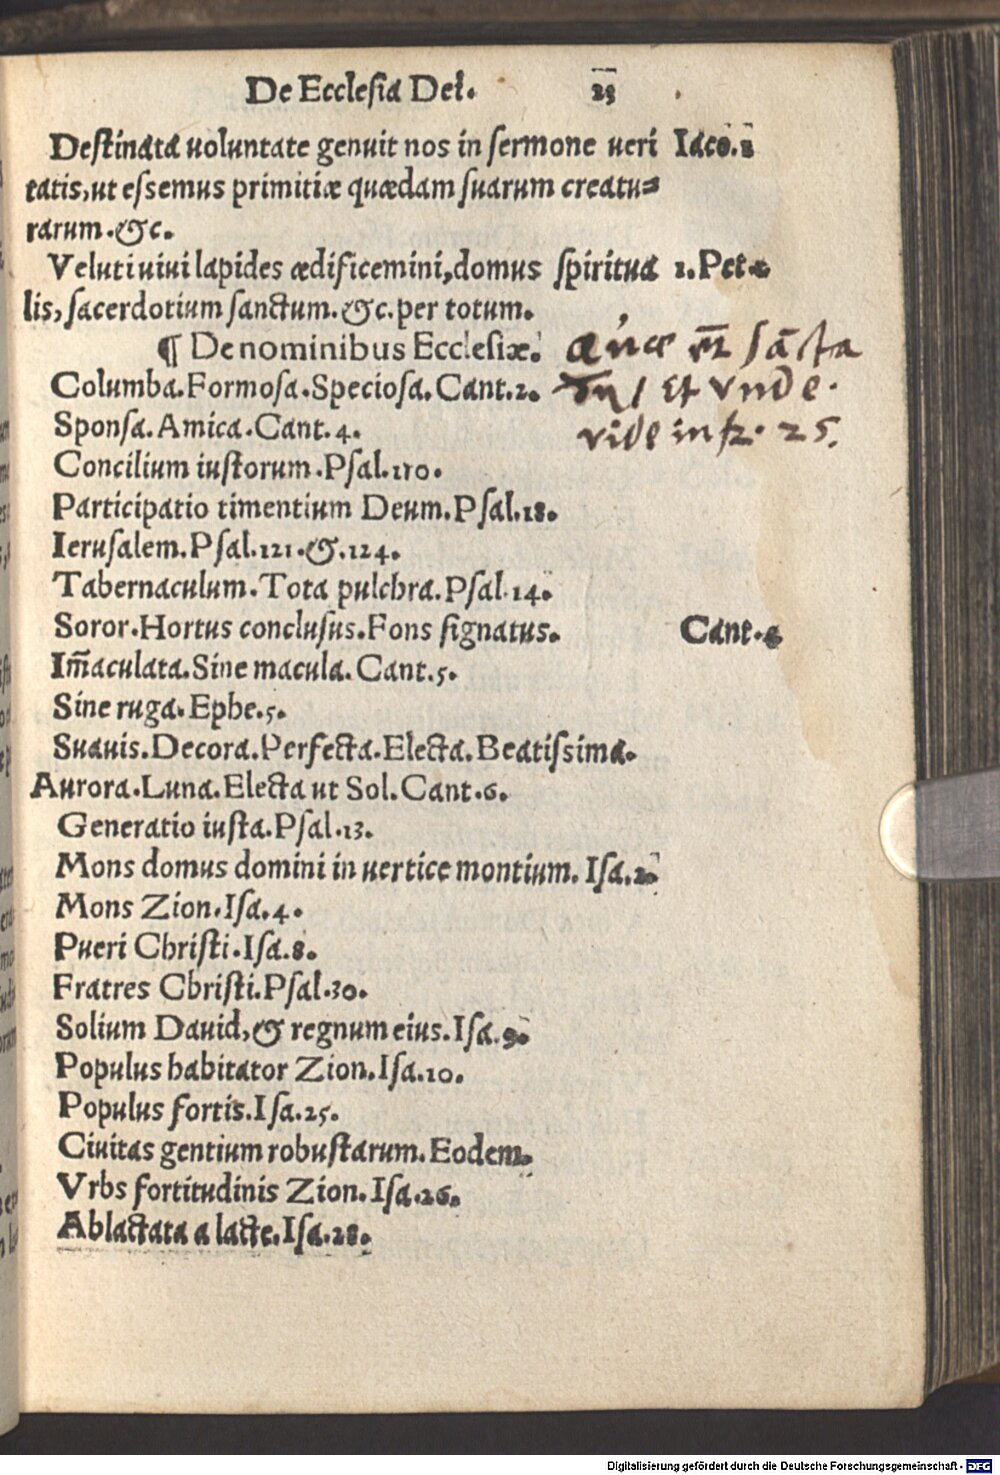 De Ecclesia Dei. 23
Destinata uoluntate genuit nos in sermone ueri Iaco.1
tatis,ut essemus primitiæ quædam suarum creatu=
rarum.&c.
Veluti uiui lapides ædificemini,domus spiritua 1.Pet.
lis,sacerdotium sanctum.&c.per totum.
¶ De nominibus Ecclesiæ.
Columba.Formosa.Speciosa.Cant.2. Et vnde.
Sponsa.Amica.Cant.4. vide 25.
Concilium iustorum.Psal.110.
Participatio timentium Deum.Psal.18.
Ierusalem.Psal.121.&.124.
Tabernaculum.Tota pulchra.Psal.14.
Soror.Hortus conclusus.Fons signatus. Cant.4
Im̄aculata.Sine macula.Cant.5.
Sine ruga.Ephe.5.
Suauis.Decora.Perfecta.Electa.Beatissima.
Aurora.Luna.Electa ut Sol.Cant.6.
Generatio iusta.Psal.13.
Mons domus domini in uertice montium. Isa.2.
Mons Zion.Isa.4.
Pueri Christi.Isa.8.
Fratres Christi.Psal.30.
Solium Dauid,& regnum eius.Isa.9.
Populus habitator Zion.Isa.10.
Populus fortis.Isa.25.
Ciuitas gentium robustarum.Eodem.
Vrbs fortitudinis Zion.Isa.26.
Ablactata a lacte.Isa.28.
Digitalisierung gefördert durch die Deutsche Forschungsgemeinschaft - DFG